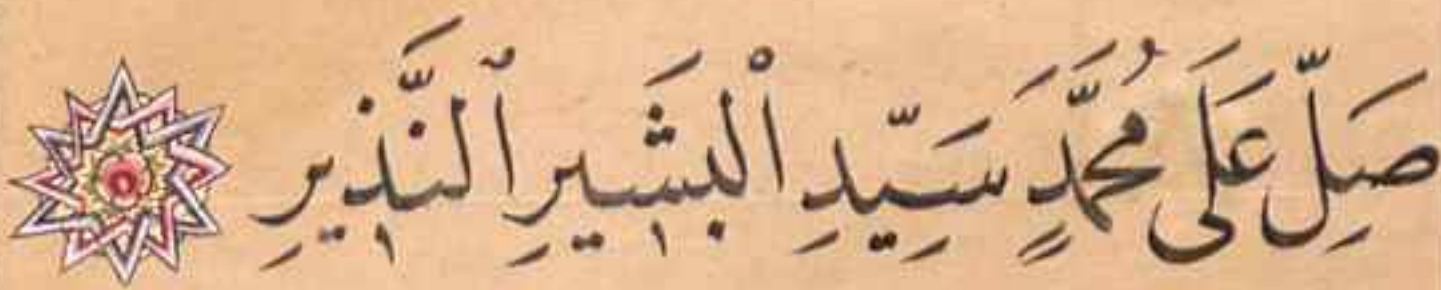 صَلِّ عَلَى مُحَمَّدٍ سَيِّدِ ٱلْبَشِيرِ ٱلنَّذِيرِ